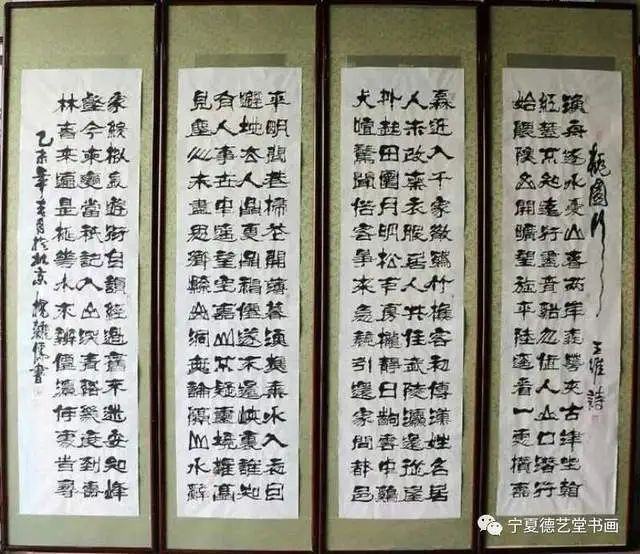 桃園行
王維詩
漁舟逐水愛山春兩岸桃花夾古津坐看
紅樹不知遠行盡青谿忽值人山口潛行
始隈隩山開曠望旋平陸遙看一處攢雲
樹近入千家散花竹樵客初傳漢姓名居
人未改秦衣服居人共住武陵源還從物
外起田園月明松下房櫳靜日出雲中雞
犬喧驚聞俗客爭來集競引還家問都邑
平明閭巷掃花開薄暮漁樵乘水入初因
避地去人間更問神僊遂不還峽裏誰知
有人事世中遙望空雲山不疑靈境難聞
見塵心未盡思鄉縣出洞無論隔山水辭
家終擬長遊衍自謂經過舊不迷安知峰
壑今來變當時只記入山深青谿幾度到雲
林春來遍是桃花水不辨僊源何處尋
乙未年春月於北京 書
宁夏德艺堂书画